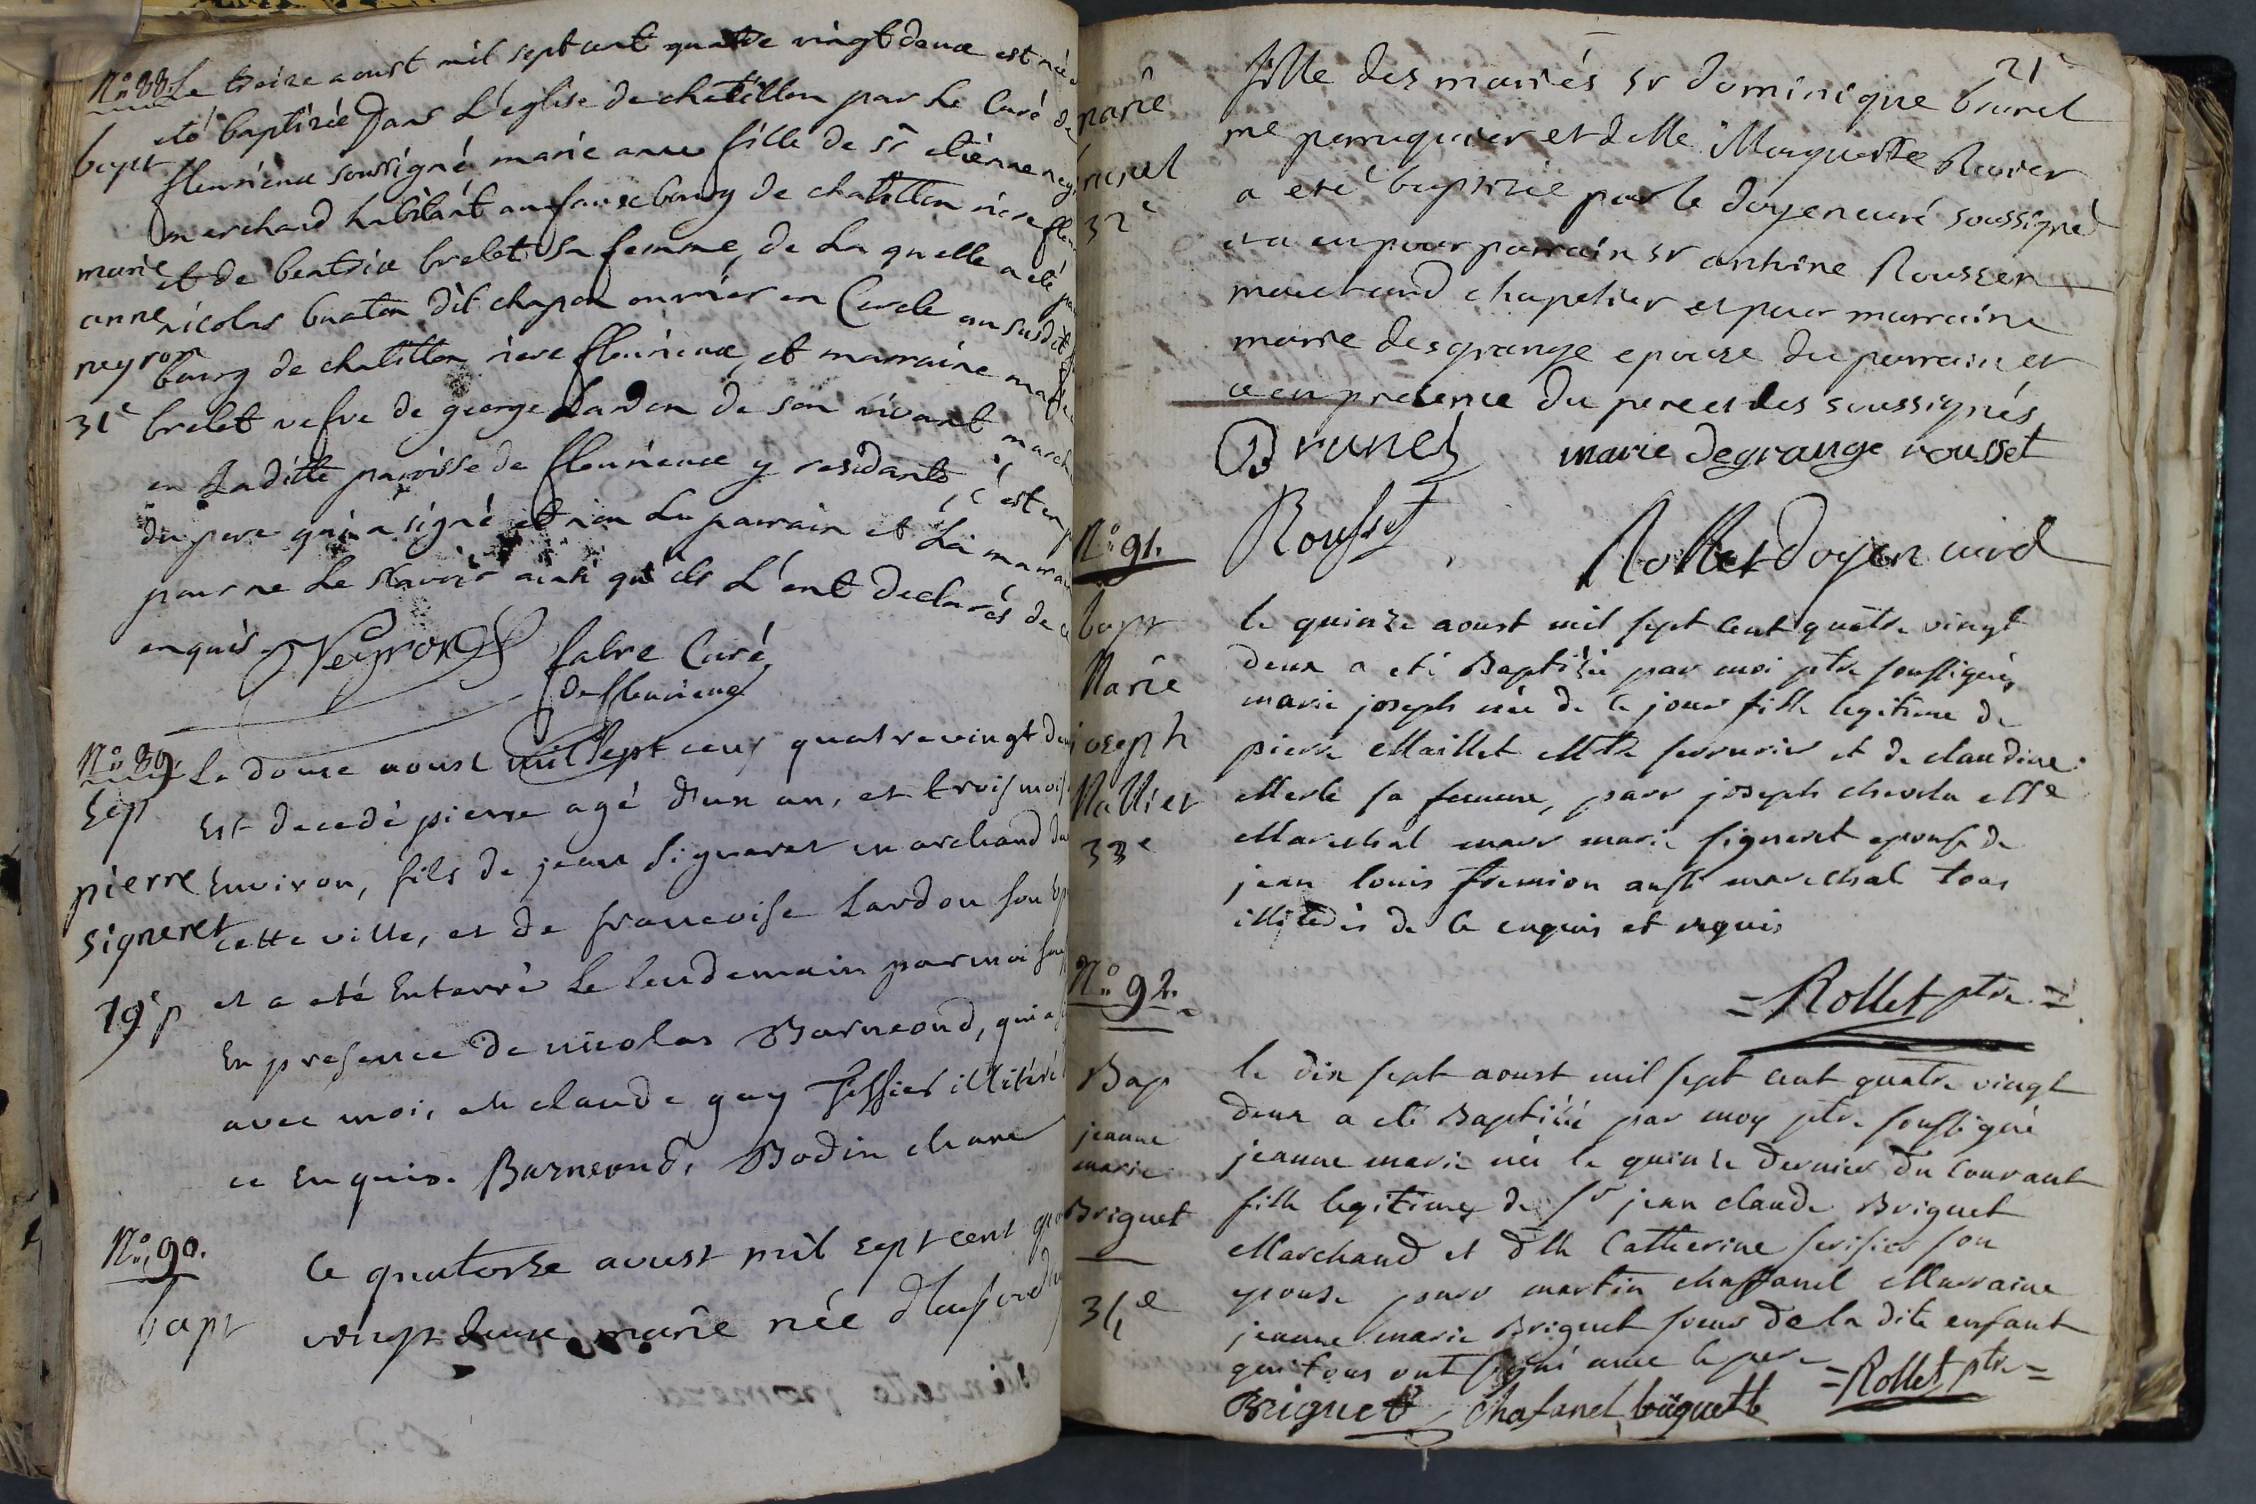 N° 88. Le treize aoust mil sept cent quatre vingt deux est née
bapt eté baptizée dans L'eglise de chatillon par Le Curé de
fleurieux soussigné marie anne fille de Sr etienne
marchand habitant au fauxbourg de chatillon riere
marie et de beatrix brelet sa femme, de La quelle a eté
anne nicolas buaton dit chapon ouvrier en Cercle au susdit
neyron bourg de chatillon riere fleurieux, et marraine
31e brelet vefve de george Lardon de son vivant
en La ditte paroisse de fleurieux y residante, c'est en
du pere qui a signé et non Le parrain et La
pour ne Le sçavoir ainsi qu'ils L'ont declarés de
enquis. Neyron fabre Curé
de fleurieux
N° 89. Le douze aoust mil sept cens quatrevingt
Sep Est decedé pierre agé d'un an, et trois mois
pierre Environ, fils de jean Signeret marchand
signeret cette ville, et de francoise Lardon son
19e p et a eté Enterré Le lendemain par moi
En presence de nicolas Barneoud, qui a
avec moi, et claude guy illitéré
ce Enquis. Barneoud, Bodin chane
N° 90. Le quatorze aoust mil sept cent
bapt vingt deux marie née
21
marie fille des mariés sr dominique brunel
me perruquier et delle Marguerite
brunel a eté baptizée par le doyen curé soussigné
32e et a eu pour parrain sr antoine Rousset
marchand chapelier et pour marraine
marie desgrange epouse du parrain et
ce en presence du pere et des soussignés
Brunel marie degrange rousset
Rousset Rollet doyen curé
N° 91.
bapt le quinze aoust mil sept cent quatre vingt
Marie deux a eté Baptisée par moi ptre soussigné,
marie joseph née de ce jour fille legitime de
joseph pierre Maillet Mtre serrurier et de claudine
Malliet Merle sa femme, parr joseph
33e Marechal marr marie signeret epouse de
jean louis fremion aussi marechal tous
de ce enquis et requis
= Rollet ptre =
N° 92.
Bap le dix sept aoust mil sept cent quatre vingt
deux a eté Baptisée par moy ptre soussigné
jeanne jeanne marie née le quinze dernier du courant
marie
Briguet fille legitime de Sr jean claude Briguet
Marchand et dlle Catherine son
34e epouse parr martin chaffanel Marraine
jeanne marie Briguet soeur de la dite enfant
qui tous ont signé avec le pere = Rollet ptre =
Briguet Chafanel briguette